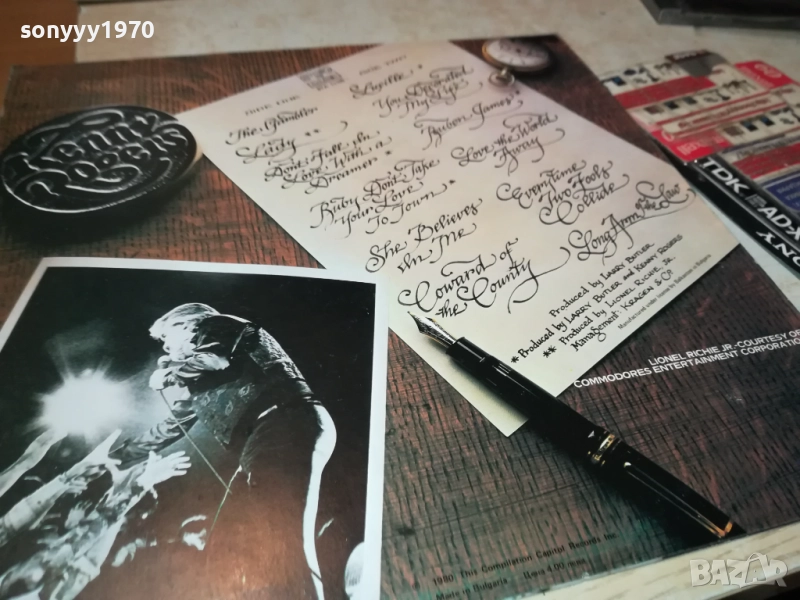 sonyyy1970
Kenny
Rogers
SIDE ONE
SIDE TWO
The Gambler
Lady **
Don't Fall In
Love With a
Dreamer *
Ruby Don't Take
Your Love
To Town *
She Believes
In Me
Coward of
the County
Lucille *
You Decorated
My Life
Ruben James *
Love the World
Away
Everytime
Two Fools
Collide *
Long Arm of the Law
Produced by LARRY BUTLER
* Produced by LARRY BUTLER and KENNY ROGERS
** Produced by LIONEL RICHIE JR.
Management: KRAGEN & CO.
Manufactured under licence by Balkanton in Bulgaria
LIONEL RICHIE JR.-COURTESY OF
COMMODORES ENTERTAINMENT CORPORATION
1980 This Compilation Capitol Records Inc.
Made in Bulgaria Цена 4.00 лева
TDK AD-X
BAZAR